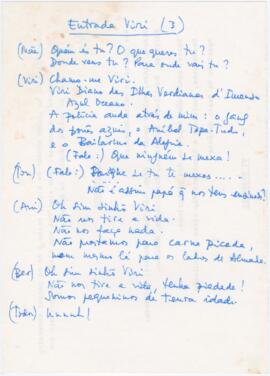 Entrada Viri (3)
(Mãe) Quem és tu? O que queres tu?
Donde vens tu? Para onde vais tu?
(Viri) Chamo-me Viri.
Viri Diano das Ilhas Verdianas d'Imenso
Azul Oceano.
A polícia anda atrás de mim: o
dos azuis, o Aníbal Tapa-Tudo,
e o Bailarino da Alegria.
(Fala:) Que ninguém se mexa!
(Fala:) se tu te mexes....
Não é assim papá q nos tens ensinado?
Oh sim sinhô Viri
Não nos tire a vida.
Não nos faça nada.
Não prestamos para carne picada,
nem mesmo lá para os lados de Almada.
(Ber) Oh sim sinhô Viri
Não nos tire a vida, tenha piedade!
Somos pequeninos de tenra idade.
Hunnh!